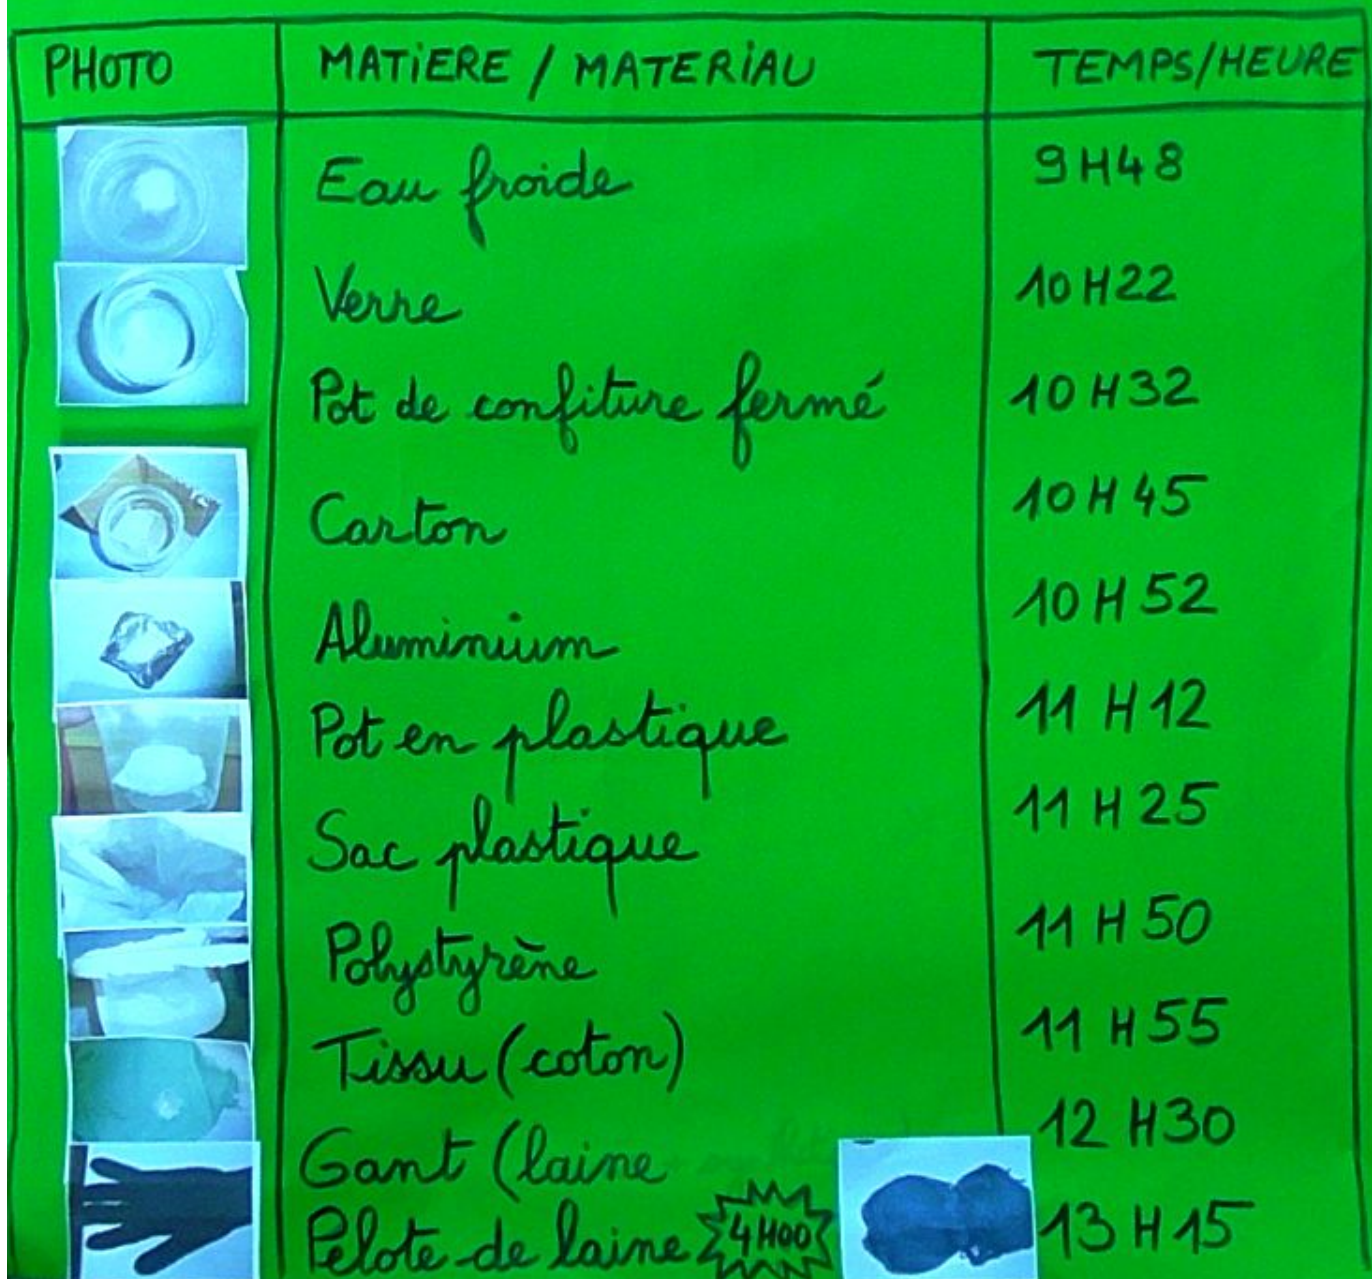 PHOTO MATiERE / MATERiAU TEMPS/HEURE
Eau froide 9H48
Verre 10H22
Pot de confiture fermé 10H32
Carton 10H45
Aluminium 10H52
Pot en plastique 11H12
Sac plastique 11H25
Polystyrène 11H50
Tissu (coton) 11H55
Gant (laine 12H30
Pelote de laine 4H00 13H15